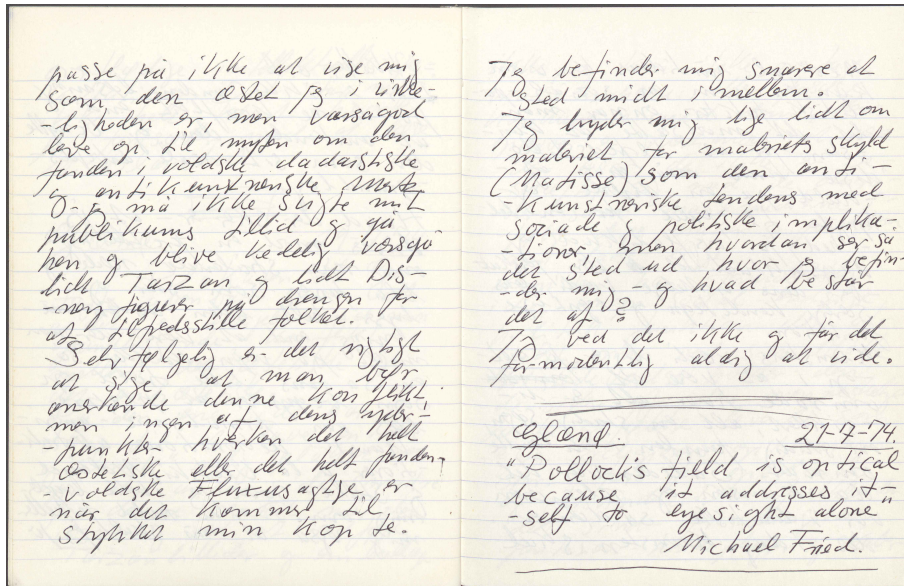 passe på ikke at vise mig
som den æstet jeg i virke-
-ligheden er, men værsågod
leve op til myten om den
fandenivoldske dadaistiske
og antikunstneriske
O- jeg må ikke svigte mit
publikums tillid og gå
hen og blive kedelig værsgo
lidt Tarzan og lidt Dis-
-ney figurer på drengen for
at tilfredsstille folket.
Selvfølgelig er det rigtigt
at sige at man bør
anerkende denne konflikt
men ingen af dens yder-
-punkter hverken det helt
æstetiske eller det helt fanden-
-voldske Fluxusagtige er
når det kommer til
stykket min kop te.
Jeg befinder mig snarere et
sted midt imellem.
Jeg bryder mig lige lidt om
maleriet for maleriets skyld
(Matisse) som den anti-
-kunstneriske tendens med
sociale og politiske implika-
-tioner, men hvordan ser så
det sted ud hvor jeg befin-
-der mig - og hvad består
det af?
Jeg ved det ikke og får det
formodentlig aldrig at vide.
21-7-74.
"Pollock's field is optical
because it addresses it-
-self to eyesight alone"
Michael Fried.